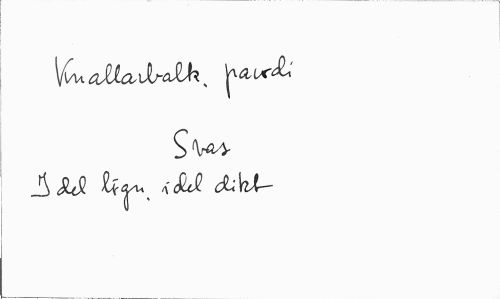 Knallarbalk, parodi
Svar
Idel lign, idel dikt